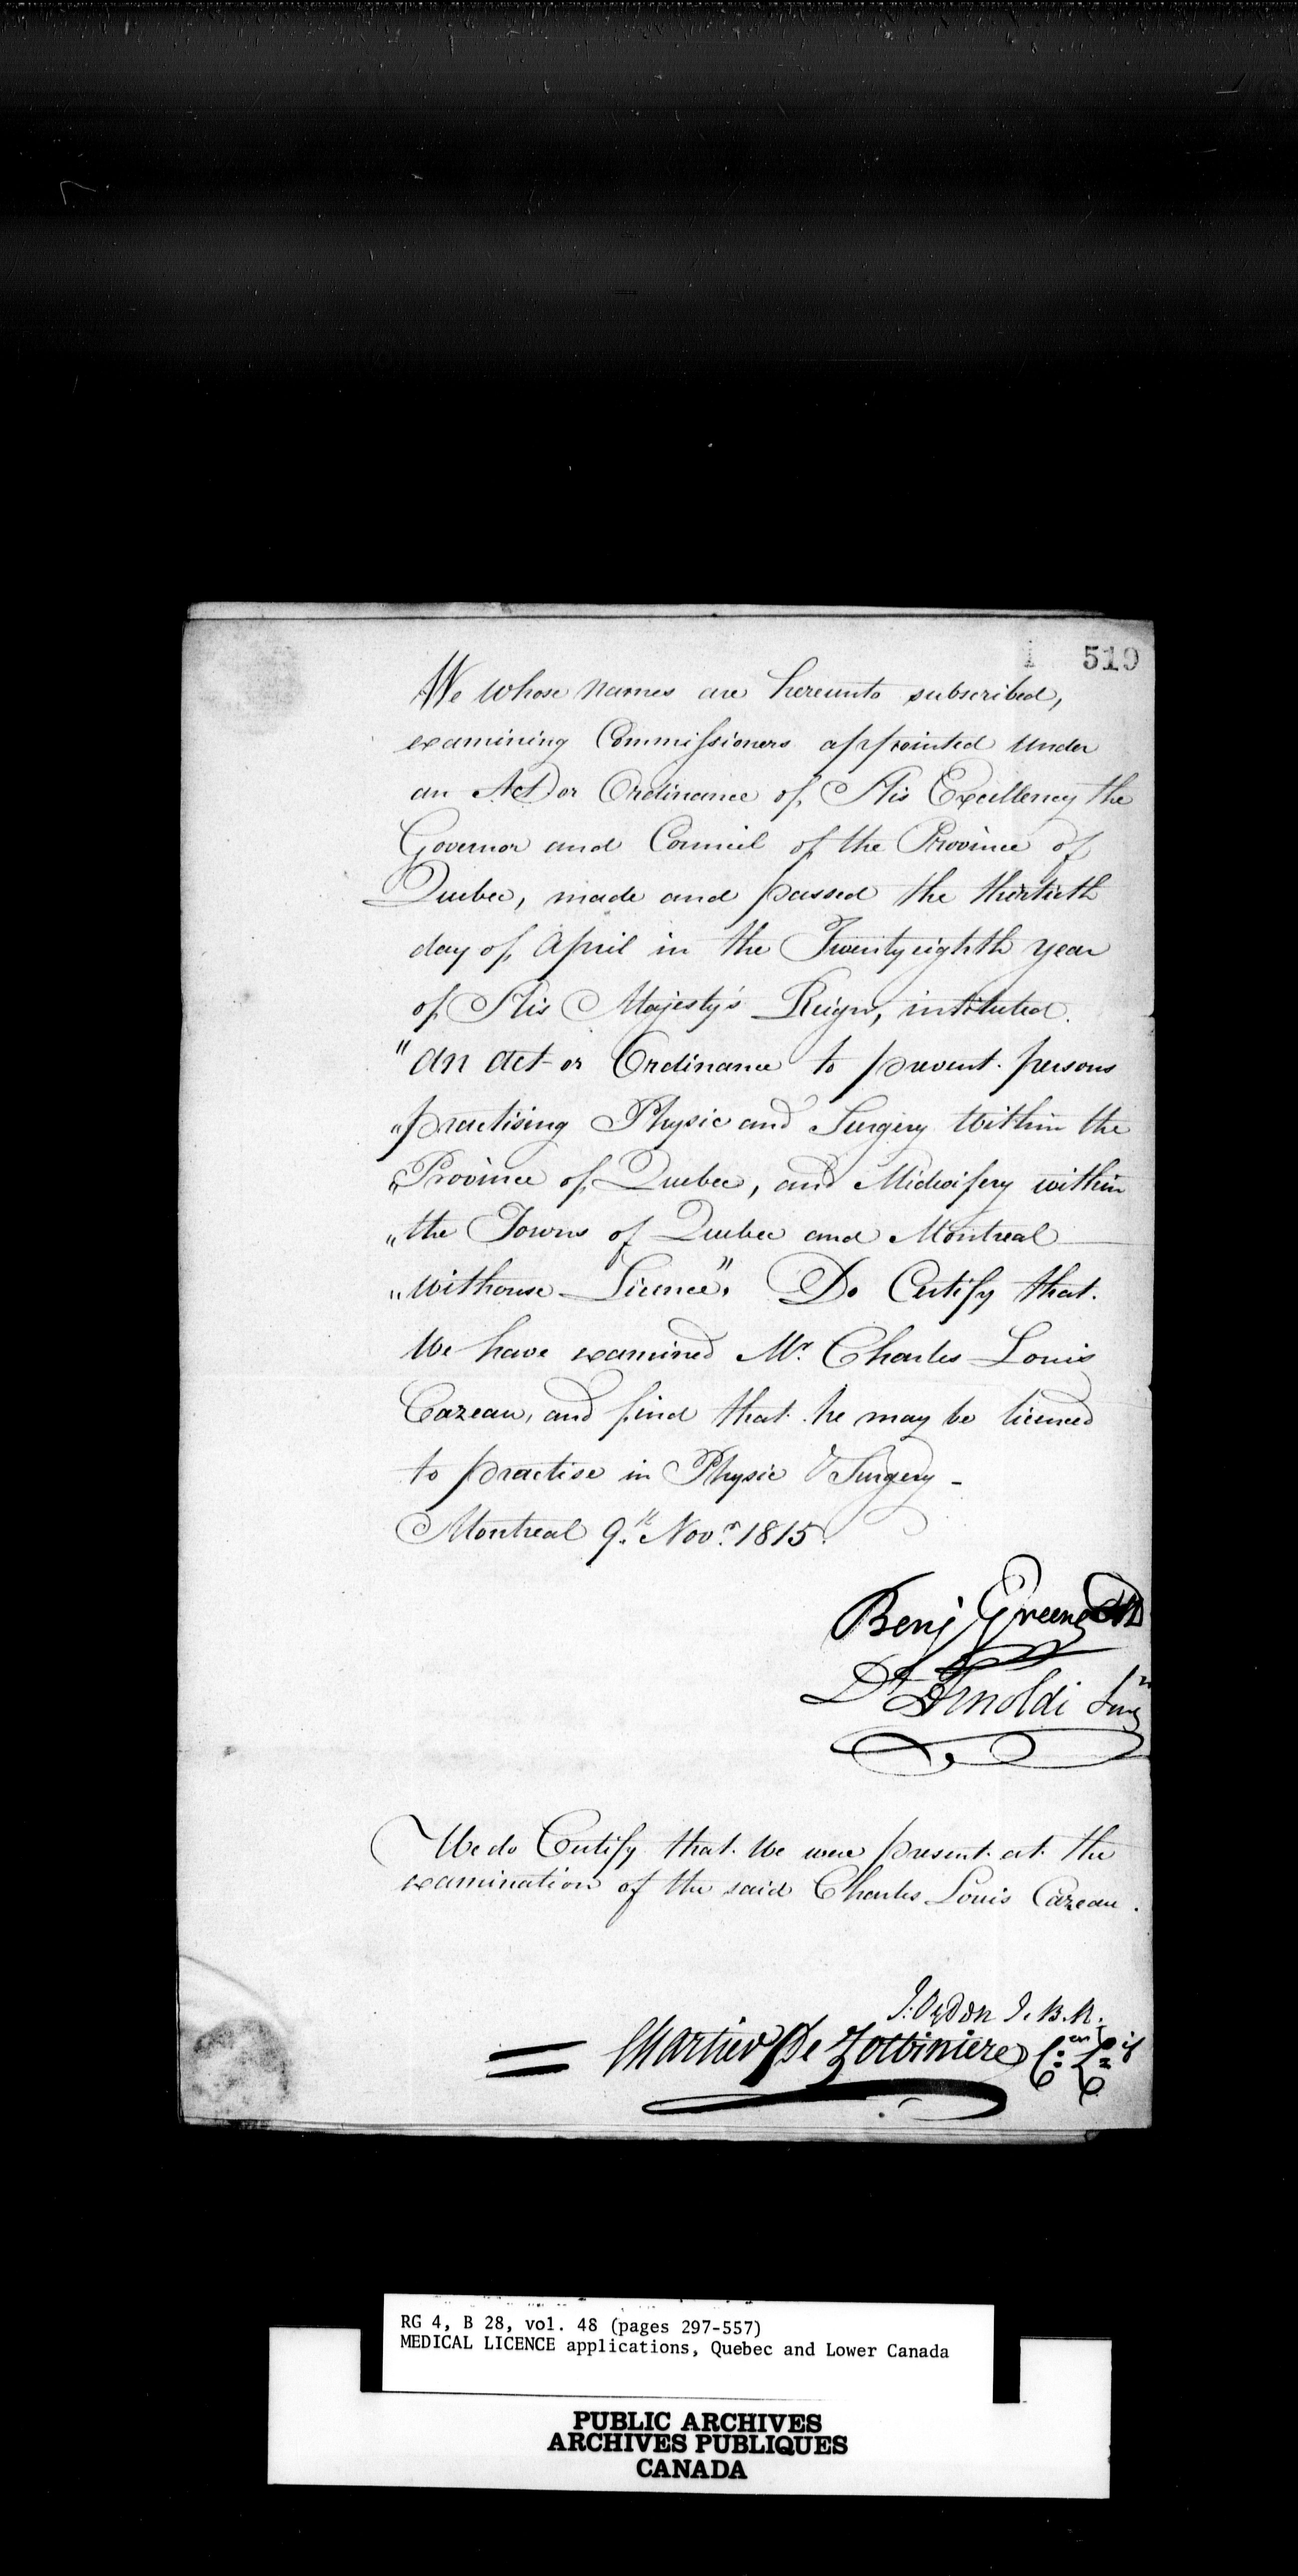 519
We whose names are hereunto subscribed,
examining Commissioners appointed under
an Act or Ordinance of His Excellency the
Governor and Council of the Province of
Quebec, made and passed the thirtieth
day of April in the Twenty eighth year
of His Majesty's Reign, intituted.
"An Act or Ordinance to prevent persons
"practising Physic and Surgery within the
"Province of Quebec, and Midwifery within
"the Towns of Quebec and Montreal
"without Licence". Do Certify that
We have examined Mr. Charles Louis
Cazeau, and find that he may be licenced
to practise in Physic & Surgery -
Montreal 9th Novr. 1815.
Benj Green
Dl Arnoldi Surgn
We do Certify that We were present at the
examination of the said Charles Louis Cazeau.
I. Ogden J. B. R.
Chartier De Lotbiniere
RG 4, B 28, vol. 48 (pages 297-557)
MEDICAL LICENCE applications, Quebec and Lower Canada
PUBLIC ARCHIVES
ARCHIVES PUBLIQUES
CANADA